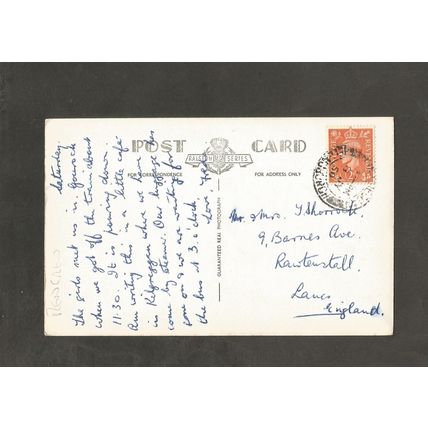 POST CARD
RALSTON SERIES
FOR CORRESPONDENCE
FOR ADDRESS ONLY
GUARANTEED REAL PHOTOGRAPH
Saturday
The girls met us in gourock
when we got off the train about
11.30. It is pouring down.
Am writing this in a little café
in Kilcreggan where we have
come by steam. Our luggage has
gone on & we are waiting for
the bus at 3. o'clock
love
Mr. & Mrs. T. Shorrock
9, Barnes Ave.
Rawtenstall.
Lancs
England.
POSTAGE REVENUE